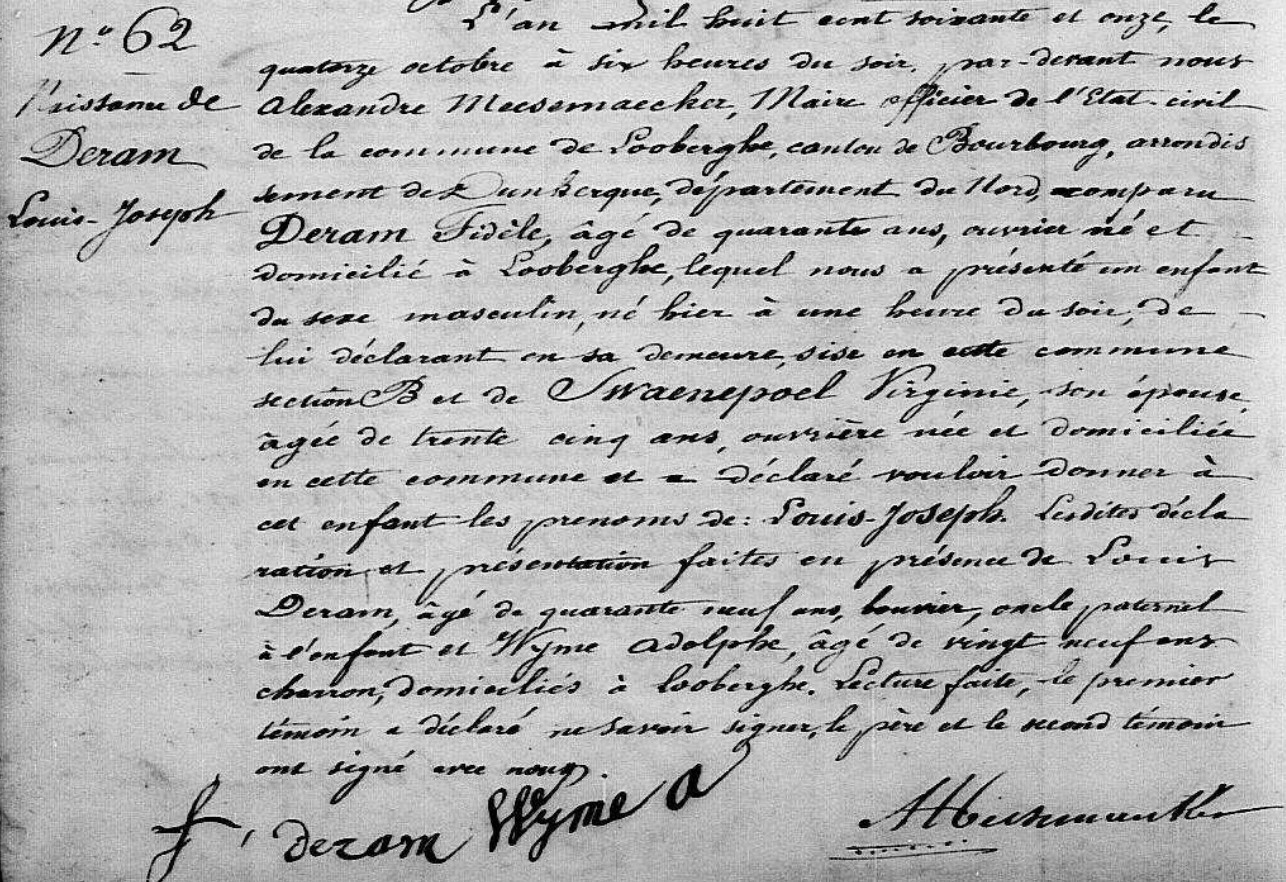 n.º 62
Naissance de
Deram
Louis-Joseph
L'an mil huit cent soixante et onze, le
quatorze octobre à six heures du soir, par-devant nous
Alexandre Meesemaecker, Maire officier de l'Etat-civil
de la commune de Looberghe, canton de Bourbourg, arrondis
sement de Dunkerque, département du Nord, a comparu
Deram Fidèle, âgé de quarante ans, ouvrier né et
domicilié à Looberghe, lequel nous a présenté un enfant
du sexe masculin, né hier à une heure du soir, de
lui déclarant en sa demeure, sise en cette commune
section B et de Swaenepoël Virginie, son épouse,
âgée de trente cinq ans, ouvrière née et domiciliée
en cette commune et a déclaré vouloir donner à
cet enfant les prenoms de: Louis-Joseph. Lesdites décla
ration et présentation faites en présence de Louis
Deram, âgé de quarante neuf ans, bouvier, oncle paternel
à l'enfant et Wyme Adolphe, âgé de vingt neuf ans
charron, domiciliés à Looberghe. Lecture faite, le premier
témoin a déclaré ne savoir signer, le père et le second témoin
ont signé avec nous.
f, deram Wyme a